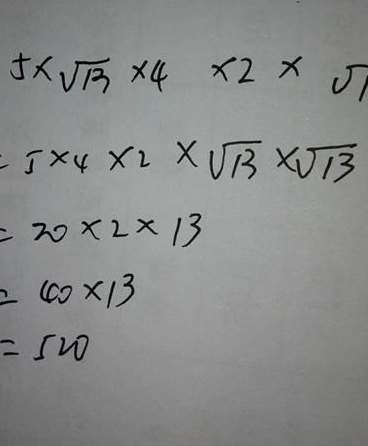 5×√13 ×4 ×2 × √1
= 5×4×2 ×√13 ×√13
= 20×2×13
= 40×13
= 520